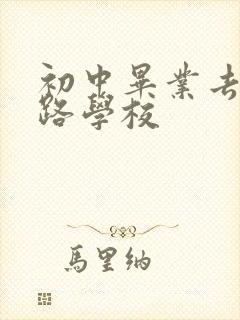 初中畢業去
路學校
馬里納